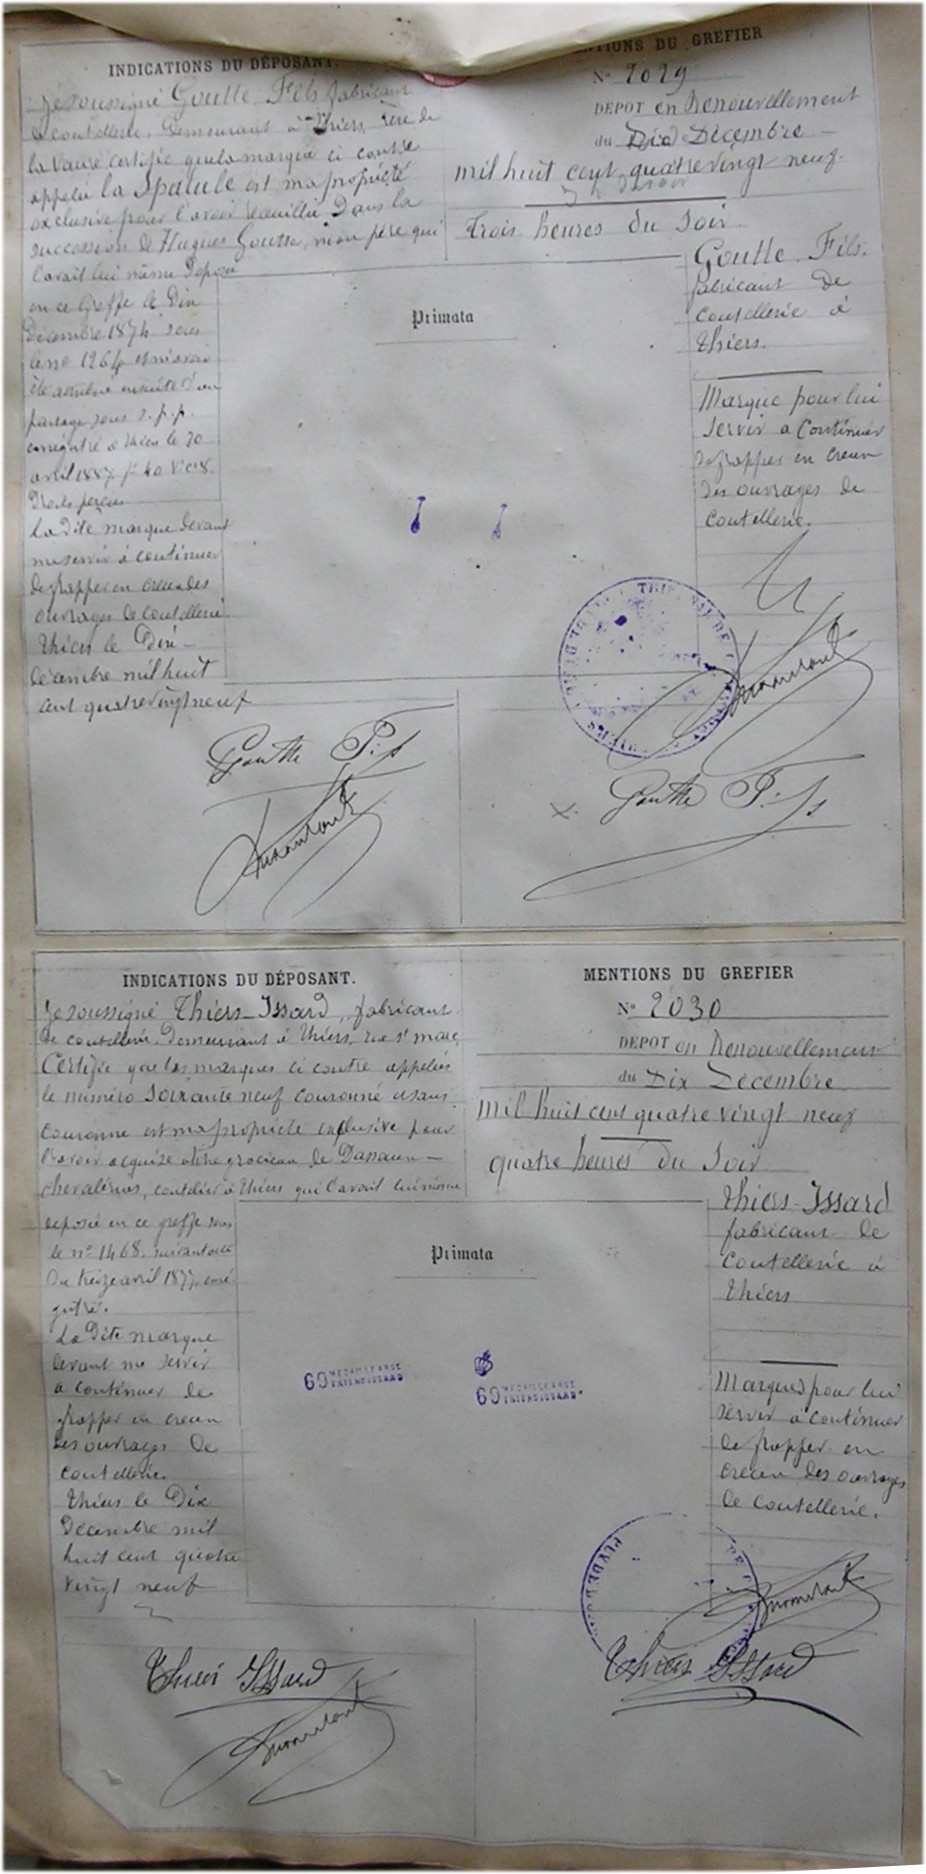 INDICATIONS DU DÉPOSANT.
Je soussigné Goutte Fils fabricant
de coutellerie, Demeurant à Thiers, rue de
la Vaure certifie que la marque ci contre
appelée la Spatule est ma propriété
exclusive pour l'avoir recueillie Dans la
succession de Hugues Goutte, mon père qui
l'avait lui même Déposé
en ce Greffe le Dix
Décembre 1874 sous
le no 1264 et m'avoir
été attribué ensuite d'un
partage sous s.p.p.
enregistré à Thiers le 20
avril 1887 fo 40 Vo c 8.
Droits perçus
La Dite marque devant
me servir à continuer
de frapper en creux des
ouvrages de coutellerie
Thiers le Dix
décembre mil huit
cent quatre vingt neuf
Goutte Fils
MENTIONS DU GREFIER
No 2029
DEPOT en Renouvellement
du Dix Décembre
mil huit cent quatre vingt neuf
Trois heures du Soir
Goutte Fils.
fabricant De
Coutellerie à
Thiers.
Marque pour lui
servir a Continuer
de frapper en creux
des ouvrages de
Coutellerie.
Primata
Goutte Fils
INDICATIONS DU DÉPOSANT.
Je soussigné Thiers-Issard, fabricant
de coutellerie, Demeurant à Thiers, rue St marc,
Certifie que les marques ci contre appelées
le numéro Soixante neuf couronné et sans
couronne est ma propriété exclusive pour
l'avoir acquise
chevalérias, coutelier à Thiers qui l'avait lui même
déposée en ce greffe sous
le no 1468. suivant acte
Du treize avril 1877, enré
gistré.
La Dite marque
devant me servir
a continuer de
frapper en creux
des ouvrages De
coutellerie.
Thiers le Dix
Décembre mil
huit cent quatre
vingt neuf
Thiers Issard
MENTIONS DU GREFIER
No 2030
DEPOT en Renouvellement
du Dix Décembre
mil huit cent quatre vingt neuf
quatre heures Du Soir
Thiers-Issard
fabricant de
Coutellerie à
Thiers
Marques pour lui
servir à continuer
de frapper en
creux des ouvrages
de coutellerie.
Primata
69 MEDAILLE ARGT
THIERS ISSARD
69 MEDAILLE ARGT
THIERS ISSARD
Thiers Issard